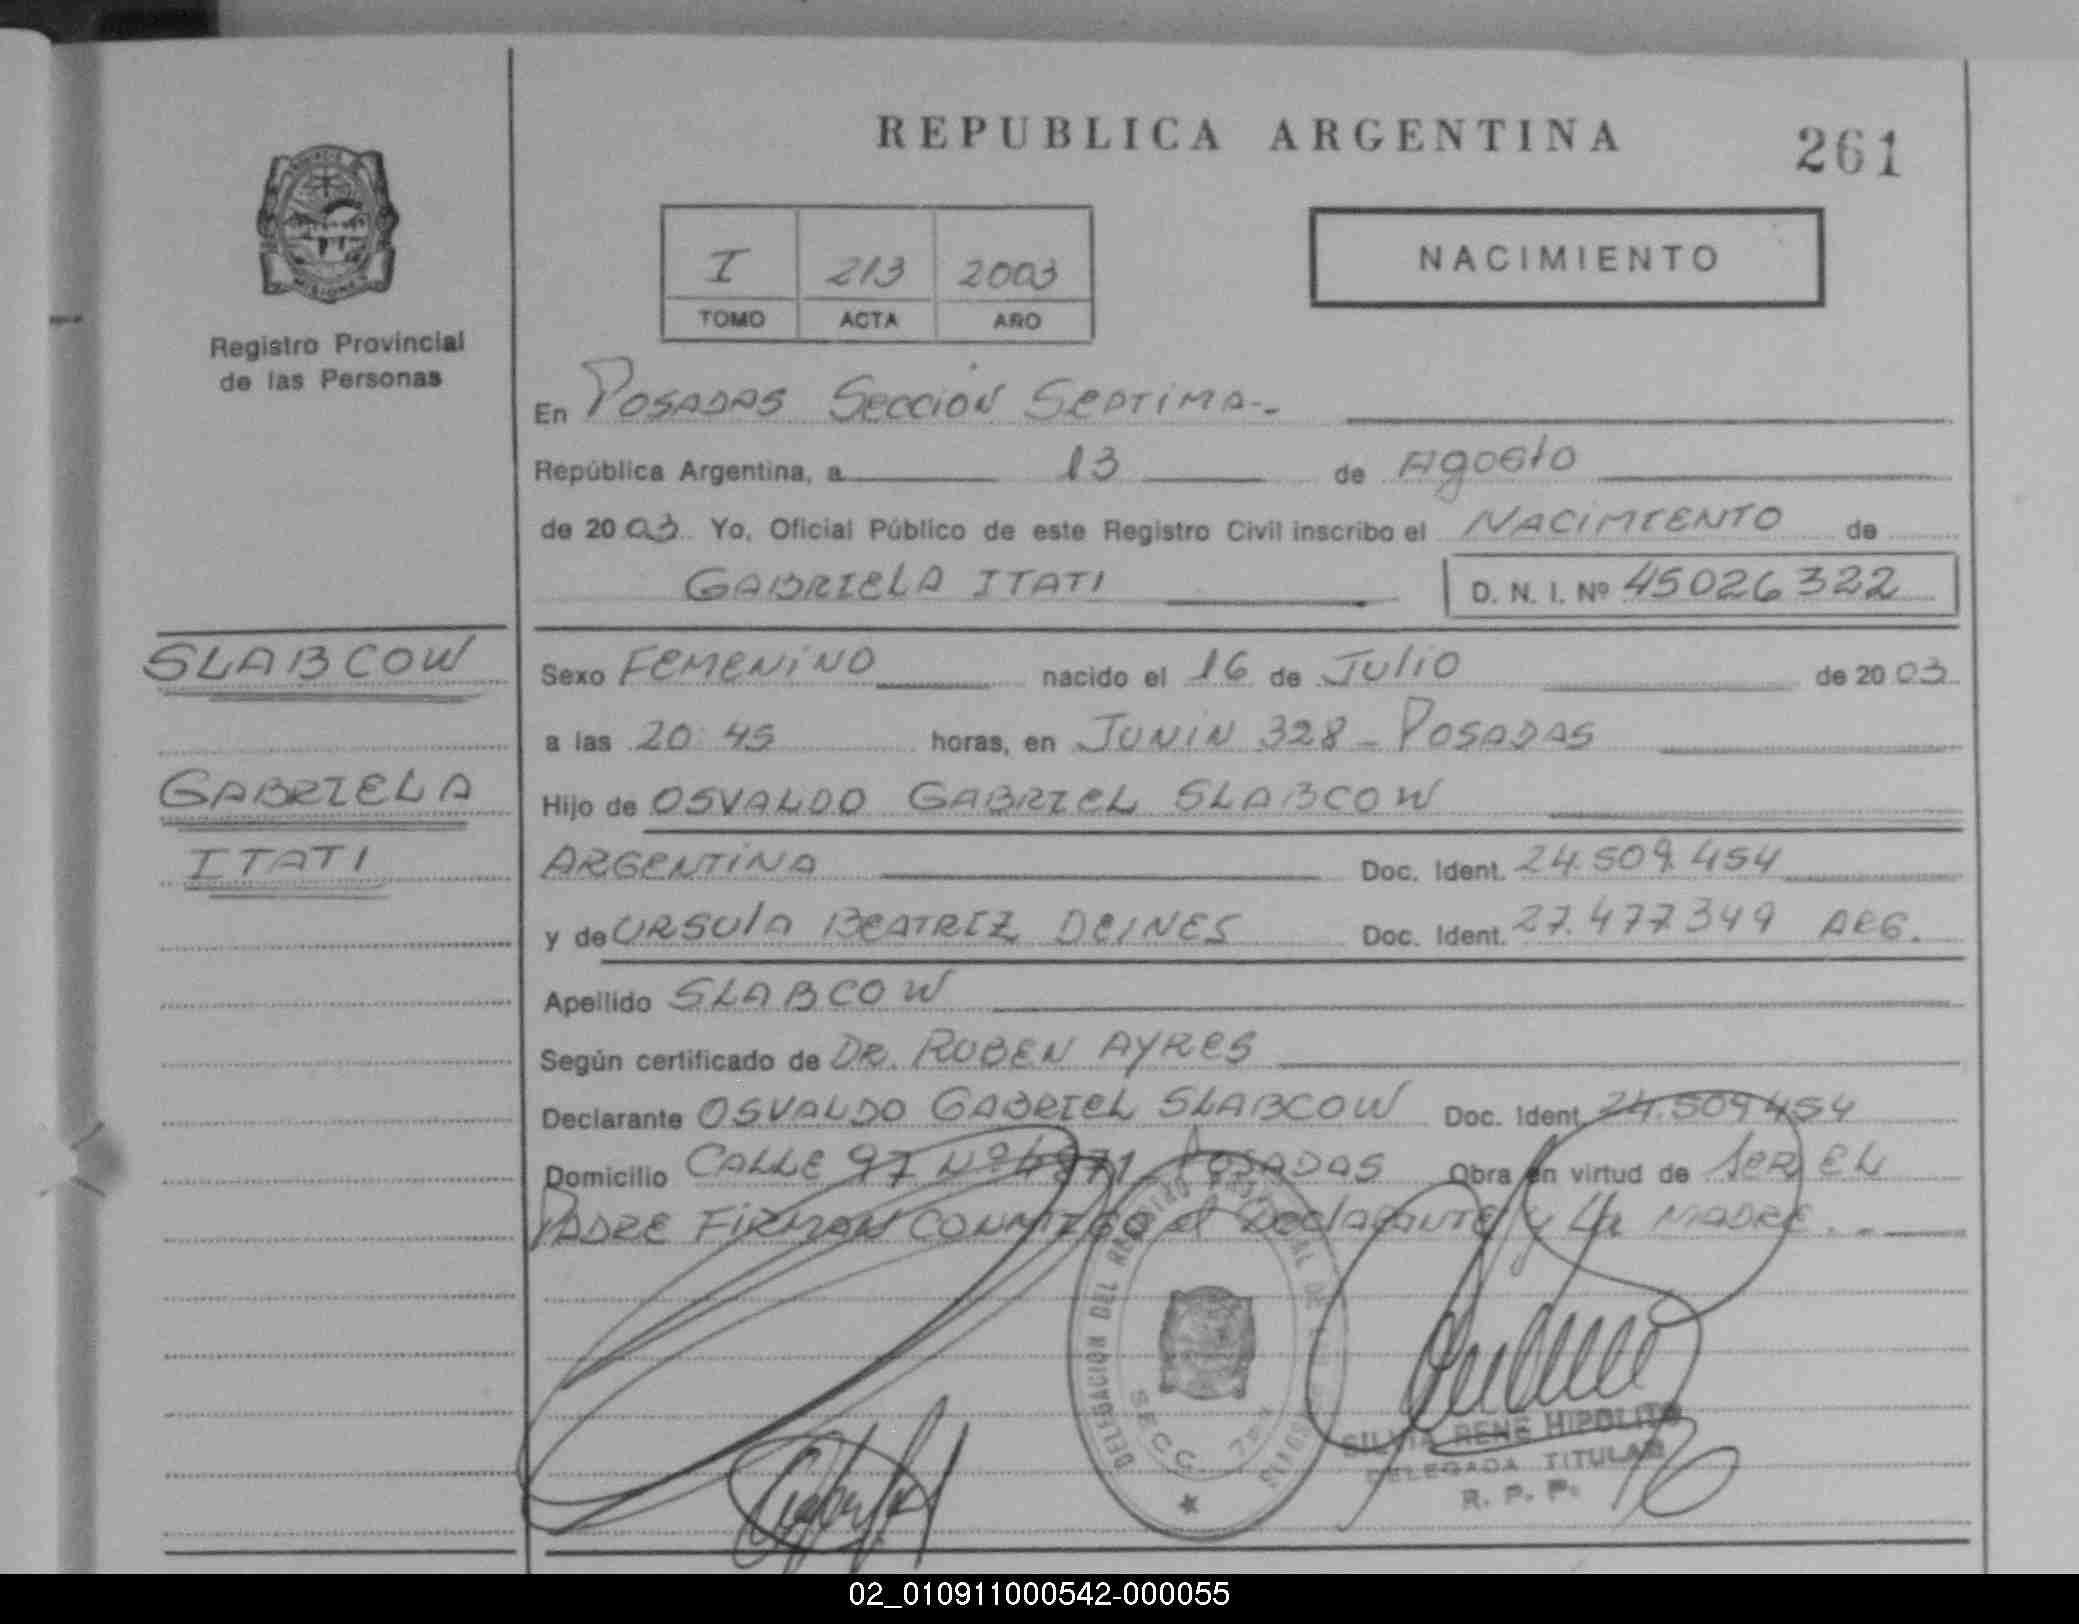 REPUBLICA ARGENTINA
261
NACIMIENTO
I 213 2003
TOMO ACTA AÑO
Registro Provincial
de las Personas
En POSADAS SECCION SEPTIMA-.
República Argentina, a 13 de Agosto
de 2003 Yo, Oficial Público de este Registro Civil inscribo el NACIMIENTO de
GABRIELA ITATI D. N. I. Nº 45026322
SLABCOW
GABRIELA
ITATI
Sexo FEMENINO nacido el 16 de Julio de 2003
a las 20:45 horas, en JUNIN 328 - POSADAS
Hijo de OSVALDO GABRIEL SLABCOW
ARGENTINA Doc. Ident. 24.509.454
y de URSULA BEATRIZ DEINES Doc. Ident. 27.477.349 ARG.
Apellido SLABCOW
Según certificado de DR. RUBEN AYRES
Declarante OSVALDO GABRIEL SLABCOW Doc. Ident. 24.509.454
Domicilio CALLE 97 Nº POSADAS Obra en virtud de SER EL
PADRE FIRMAN CONMIGO el DeclaRANTE y LA MADRE.-
DELEGACION DEL REGISTRO PROVINCIAL DE
SECC. 7ma
SILVIA RENE HIPOLITO
DELEGADA TITULAR
R. P. P.
02_010911000542-000055